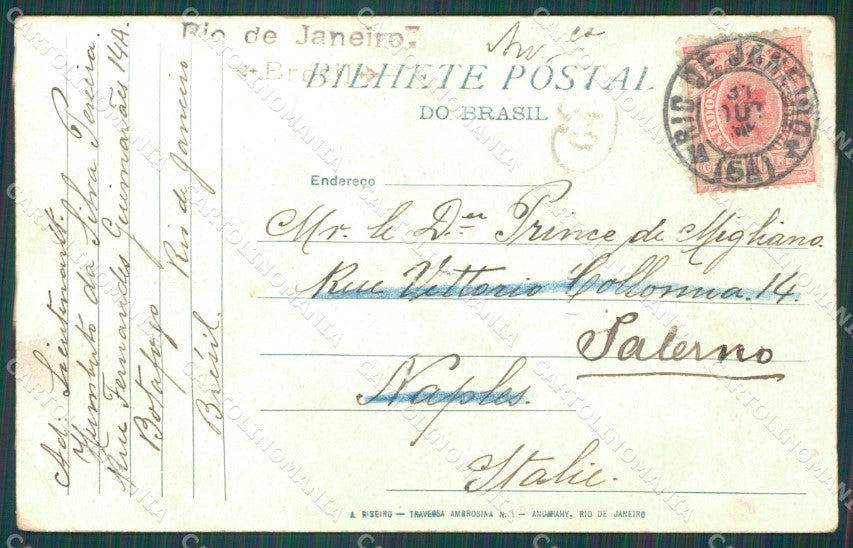 Rio de Janeiro
Brazil
BILHETE POSTAL
DO BRASIL
RIO DE JANEIRO
(5A)
Endereço
Mr. le Dr Prince de Migliano.
Rue Vittorio Collonna. 14
Salerno
Naples.
Italie.
Humberto da Silva Pereira
Rua Fernandes Guimarães 14A.
Botafogo Rio de Janeiro
Brésil.
A. RIBEIRO — TRAVESSA AMBROSINA N. 1 — ANDARAHY, RIO DE JANEIRO
CARTOLINOMANIA